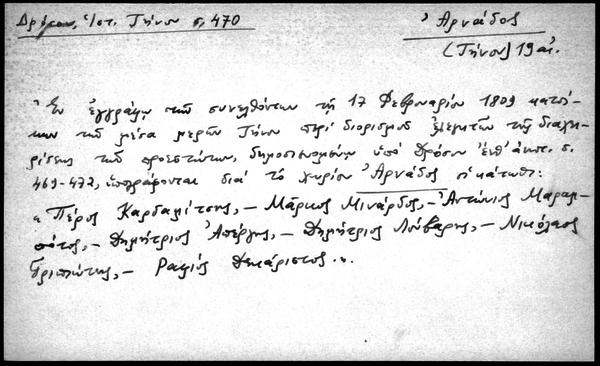 Δρόσου, Ἱστ. Τήνου σ. 470
Ἀρνάδος
(Τήνου) 19 αἰ.
Ἐν ἐγγράφῳ τῶν συνελθόντων τῇ 17 Φεβρουαρίου 1809 κατοί-
κων τῶν μέσα μερῶν Τήνου περὶ διορισμοῦ ἐλεγκτῶν τῆς διαχει-
ρίσεως τῶν προεστώτων, δημοσιευομένῳ ὑπὸ Δρόσου ἔνθ' ἀνωτ. σ.
469-472, ὑπογράφονται διὰ τὸ χωρίον Ἀρνάδος οἱ κάτωθι:
« Πέρος Καρδαμίτσης, – Μάρκος Μινάρδος, – Ἀντώνιος Μαραγ-
– Δημήτριος Ἀπέργης, – Δημήτριος Λούβαρης, – Νικόλαος
– Δεκάριστος ».